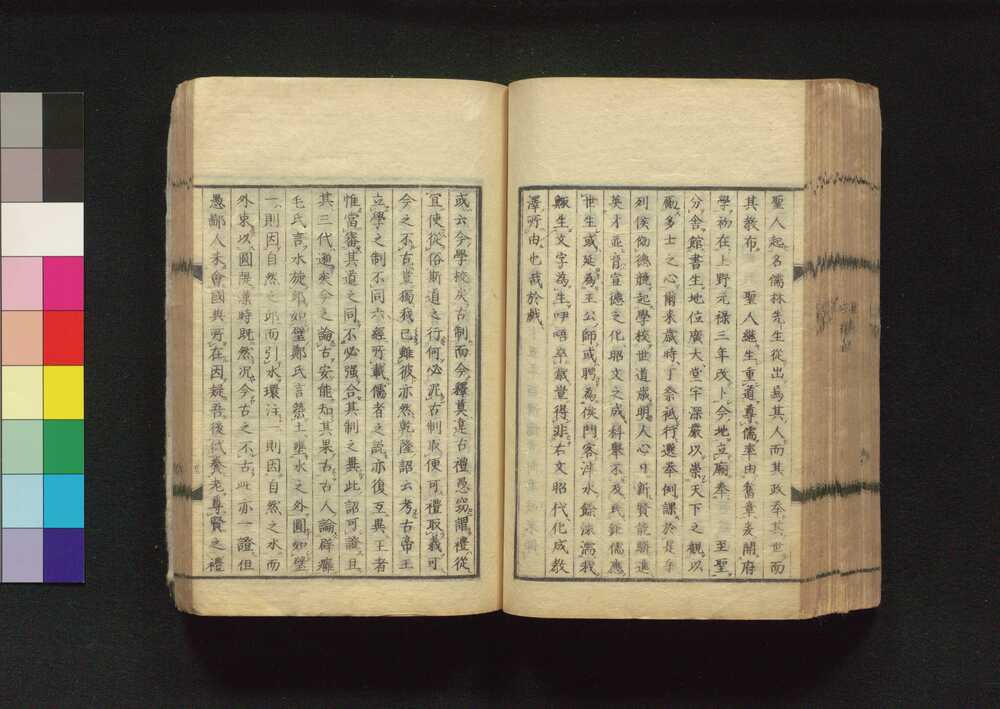 聖人起名儒林先生從出焉其人而其政奉其世而
其教布　聖人繼生重道尊儒率由舊章爰開府
學初在上野元禄三年改卜今地立廟奉　至聖
分舎館書生地位廣大堂宇深嚴以崇天下之觀以
勵多士之心爾来歳時丁祭祗行選挙例課於是乎
列侯俲德競起學校世道歳明人心日新賢能駢進
英才並育宣德之化昭文之成科舉不及民鉅儒應
世生或延為王公師或聘為侯門客泮水餘沫濡我
鯫生文字為生咿唔卒歳豈得非右文昭代化成教
澤所由也哉於戯
或云今學校失古制而今釋奠違古禮愚窃謂禮從
宜使從俗斯道之行何必泥古制取便可禮取義可
今之不古豈獨我已雖彼亦然乾隆詔云考古帝王
立學之制不同六經所載儒者之説亦復互異王者
惟當審其道之同不必强合其制之異此詔可證且
其三代邈矣今之論古安能知其果古古人論辟廱
毛氏言水旋邱如璧鄭氏言築土壅水之外圓如璧
一則因自然之邱而引水環注一則因自然之水而
外束以圓隄漢時既然况今古之不古此亦一證但
愚鄙人未會國典所在因疑吾後代養老尊賢之禮